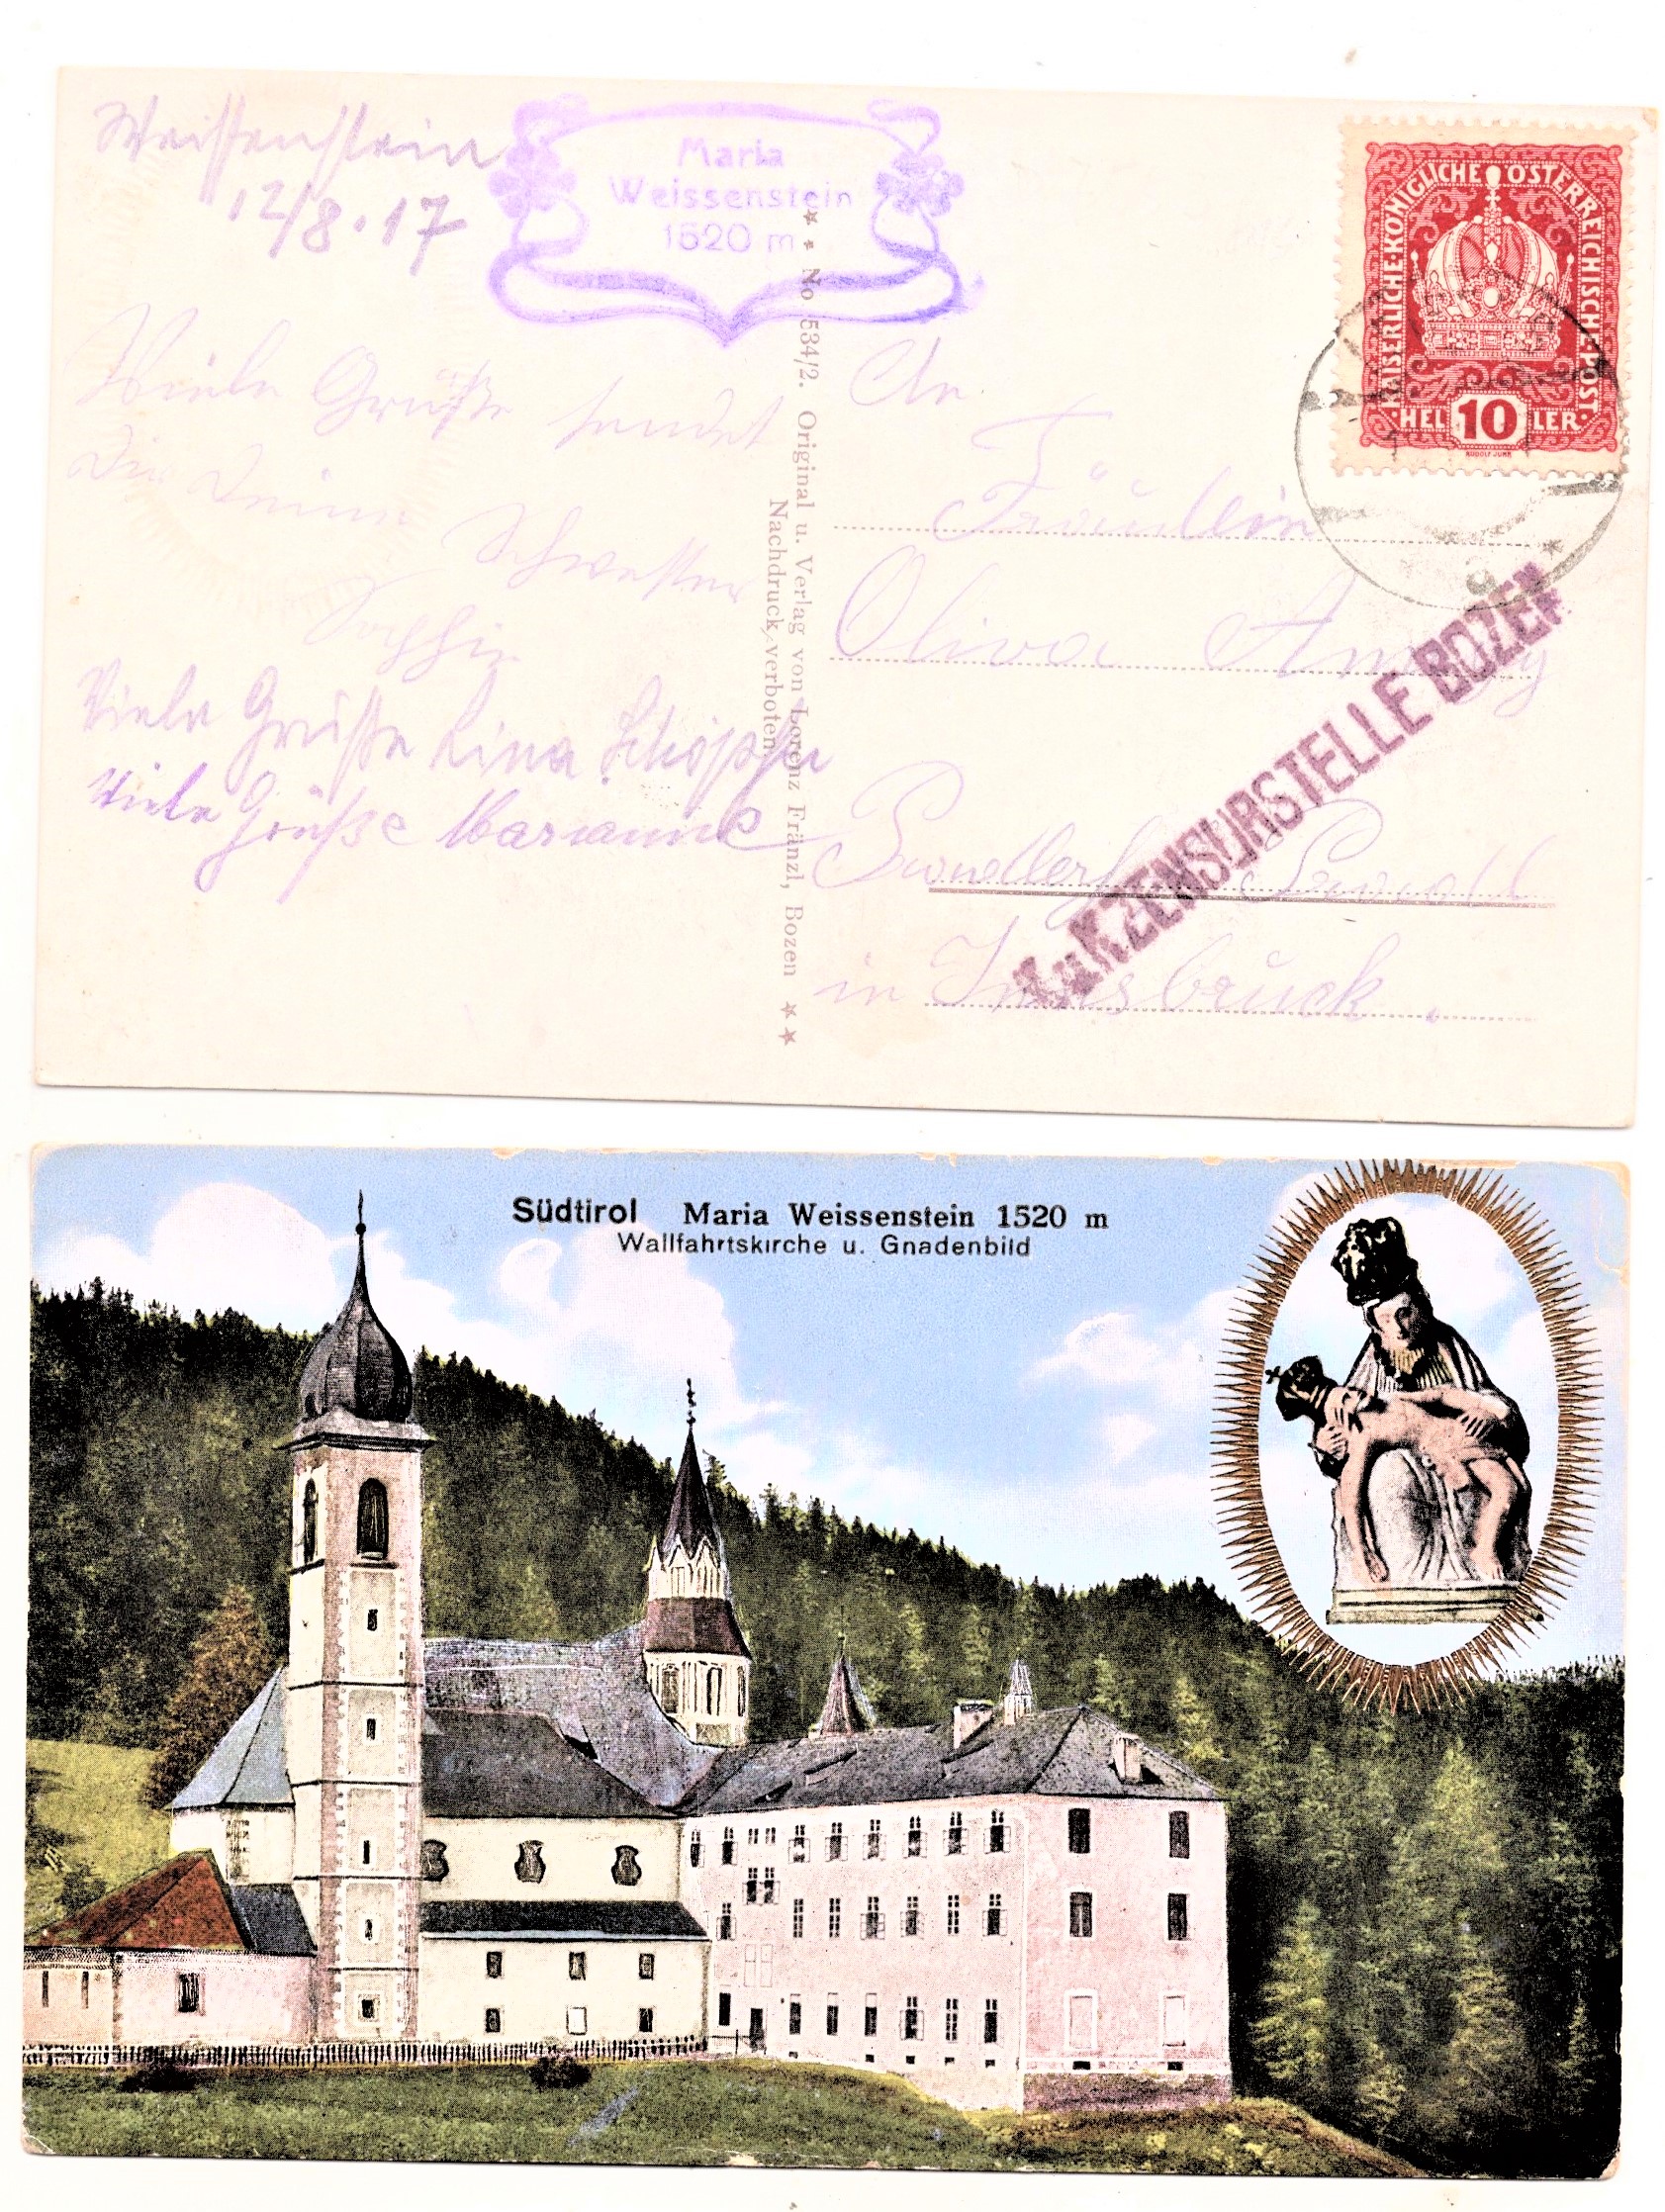 Weissenstein
12/8.17
Maria
Weissenstein
1520 m
Viele Grüße sendet
Dir Deine
Schwester
Viele Grüsse Lina
Viele Grüße Marianne
★ ★ No 534/2. Original u. Verlag von Lorenz Fränzl, Bozen ★ ★
Nachdruck verboten.
KAISERLICHE·KÖNIGLICHE ÖSTERREICHISCHE·POST·
HELLER 10
RUDOLF JUNK
An
Fräulein
Oliva
in Innsbruck.
K.u.K ZENSURSTELLE BOZEN
Südtirol Maria Weissenstein 1520 m
Wallfahrtskirche u. Gnadenbild